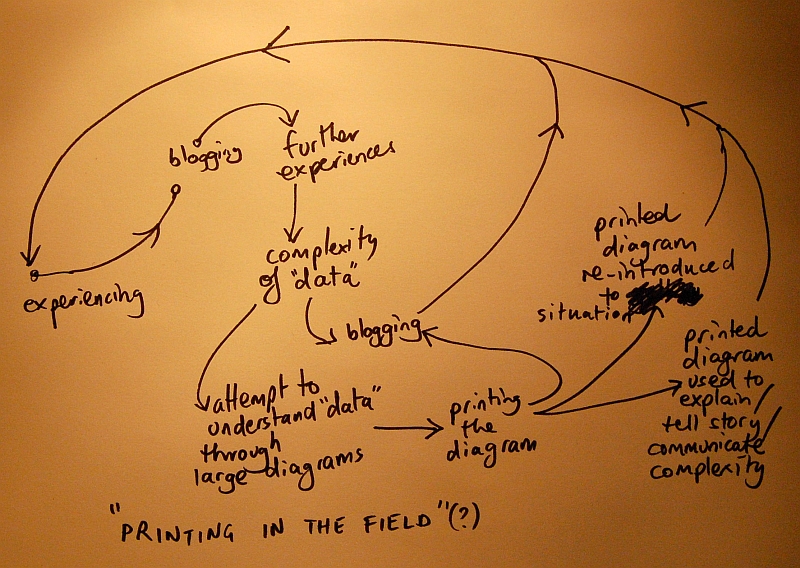 blogging
further
experiences
experiencing
complexity
of "data"
blogging
attempt to
understand "data"
through
large diagrams
printing
the
diagram
printed
diagram
re-introduced
to
situation
printed
diagram
used to
explain/
tell story/
communicate
complexity
"PRINTING IN THE FIELD"(?)